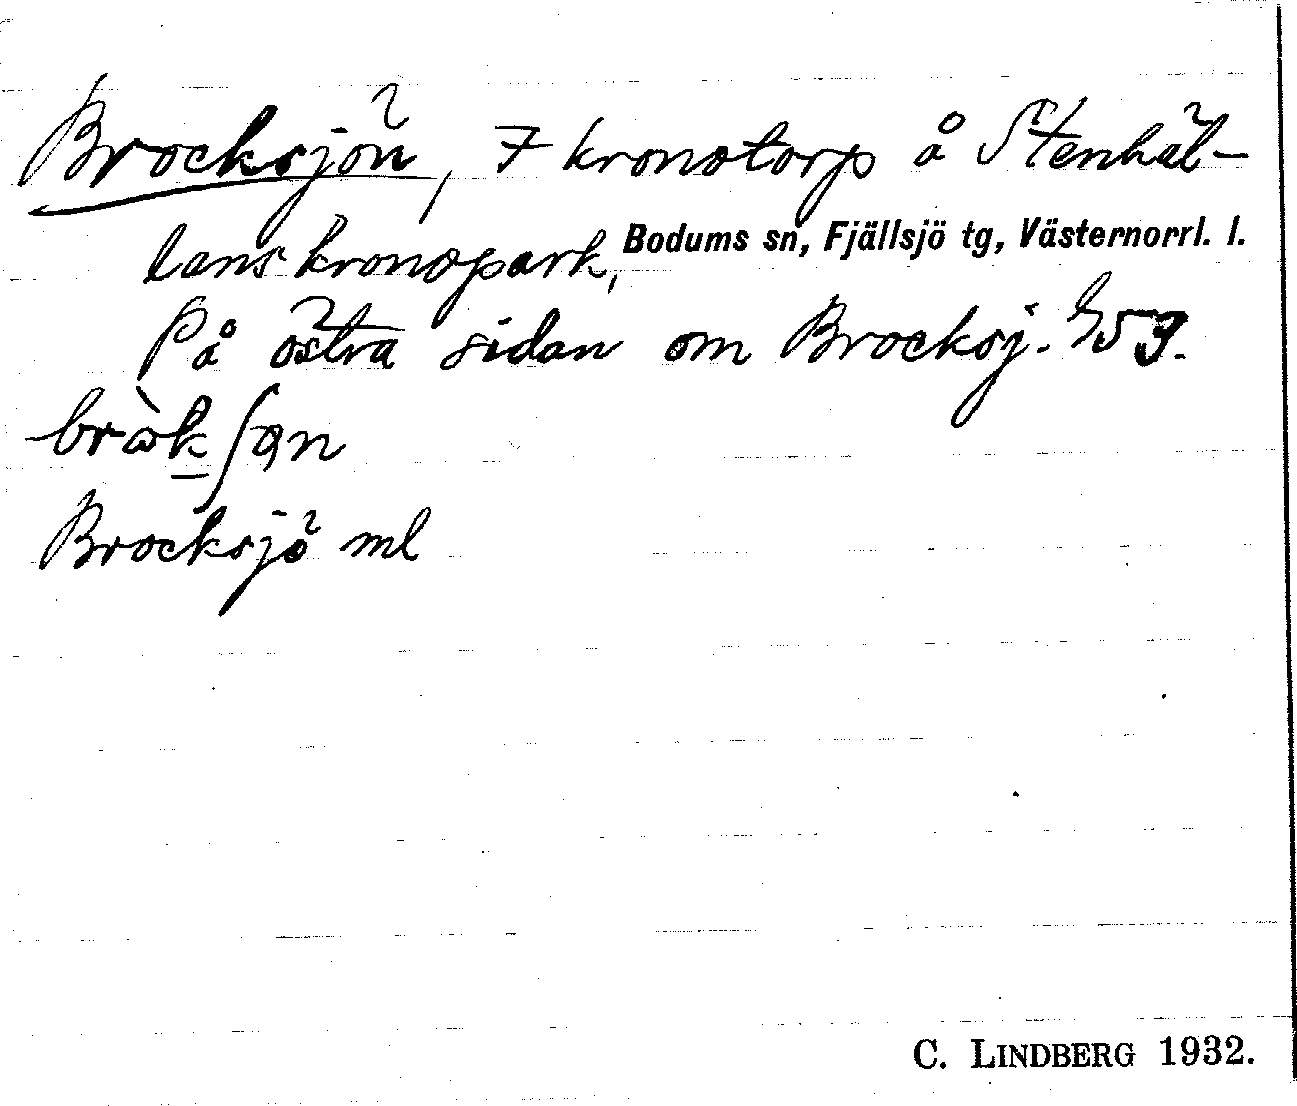 Brocksjön, 7 kronotorp å Stenhäl-
lans kronopark, Bodums sn, Fjällsjö tg, Västernorrl. l.
På östra sidan om Brocksj.
Brocksjö ml
C. LINDBERG 1932.